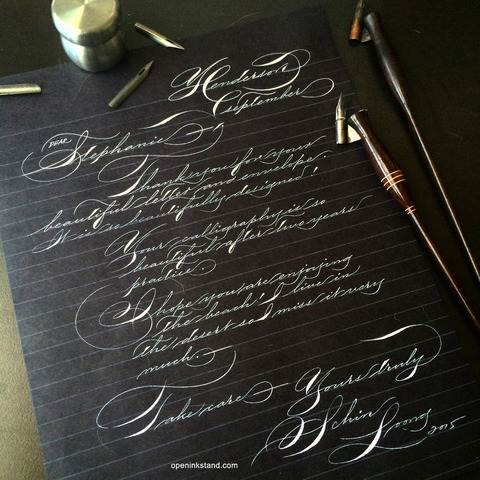 Henderson
September
DEAR
Stephanie,
Thank you for your
beautiful letter and envelope.
It is so beautifully designed!
Your calligraphy is so
beautiful after two years
practice.
I hope you are enjoying
the beach! I live in
the desert so I miss it very
much.
Take care
Yours truly
Schin Loong
2015
openinkstand.com